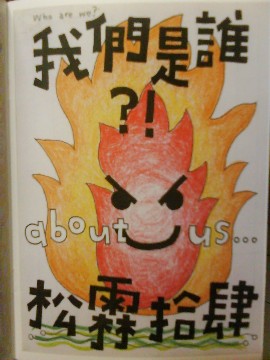 Who are we?
我們是誰
?!
about us...
松霖拾肆